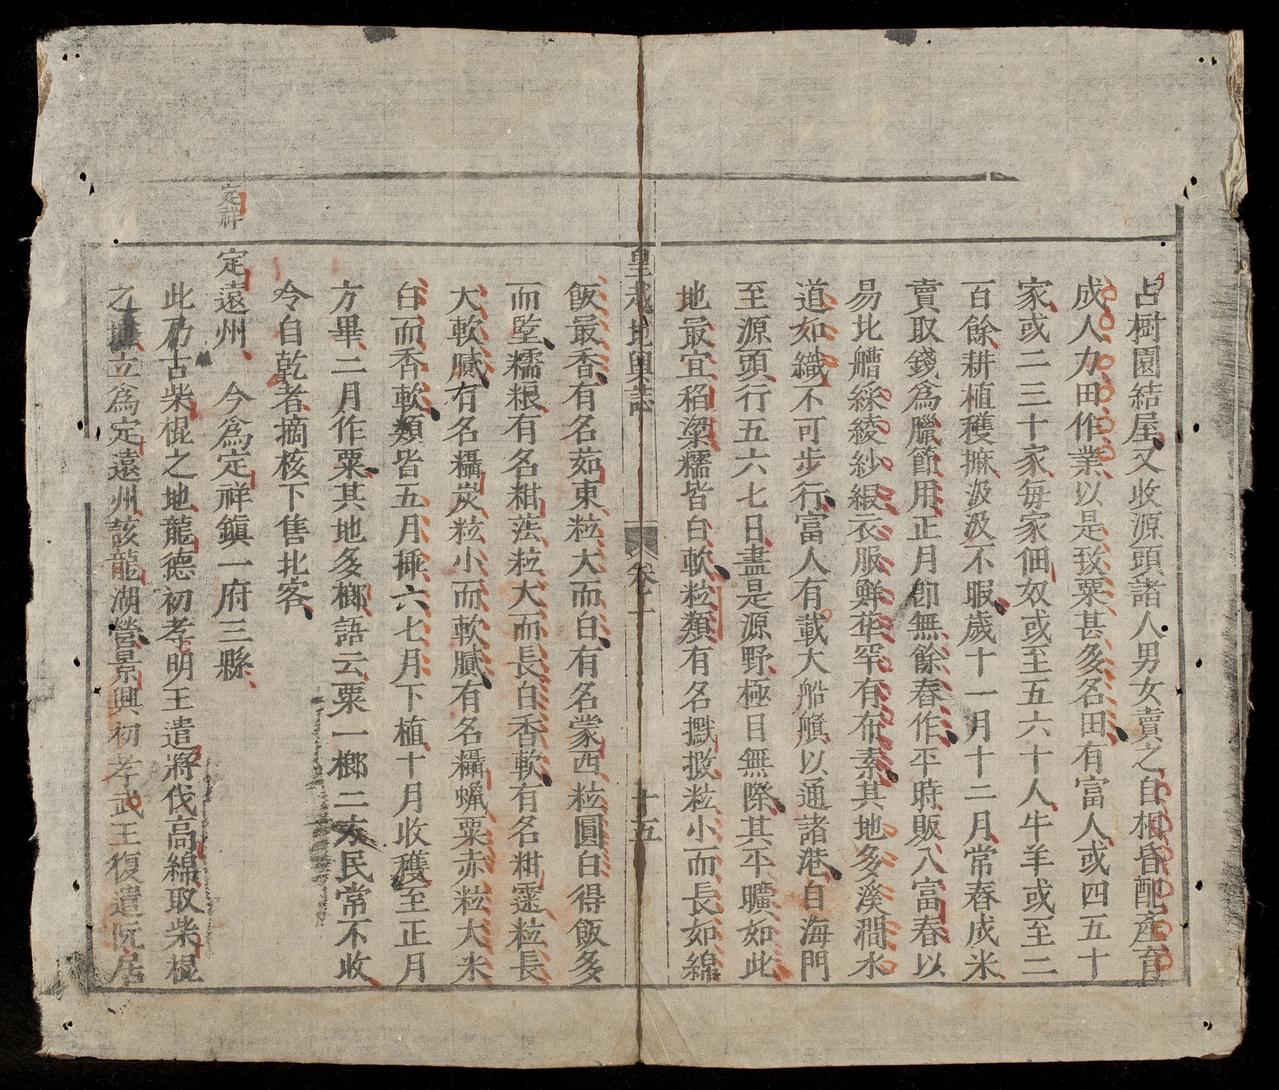 占樹園結屋又收源頭諸人男女賣之自相昏配產育
成人力田作業以是致粟甚多名田有富人或四五十
家或二三十家每家佃奴或至五六十人牛羊或至二
百餘耕植穫攠汲汲不暇歲十一月十二月常舂成米
賣取錢爲臘節用正月卽無餘舂作平時販入富春以
易北艚綵綾紗緞衣服鮮華罕有布素其地多溪澗水
道如織不可步行富人有載大船艤以通諸港自海門
至源頭行五六七日盡是源野極目無際其平曠如此
地最宜稻粱糯皆白軟粒類有名 粒小而長如綿
皇越地輿誌 卷之一 十五
飯最香有名茹東粒大而白有名蒙西粒圓白得飯多
而堅糯粮有名粓 粒大而長白香軟有名粓 粒長
大軟膩有名 炭粒小而軟膩有名 蠟粟赤粒大米
白而香軟類皆五月揷六七月下植十月收穫至正月
方畢二月作粟其地多榔語云粟一榔二方民常不收
令自乾者摘核下售北客
定祥
定遠州 今爲定祥鎭一府三縣
此乃古柴棍之地龍德初孝明王遣將伐高綿取柴棍
之地立爲定遠州該龍湖營景興初孝武王復遣阮居